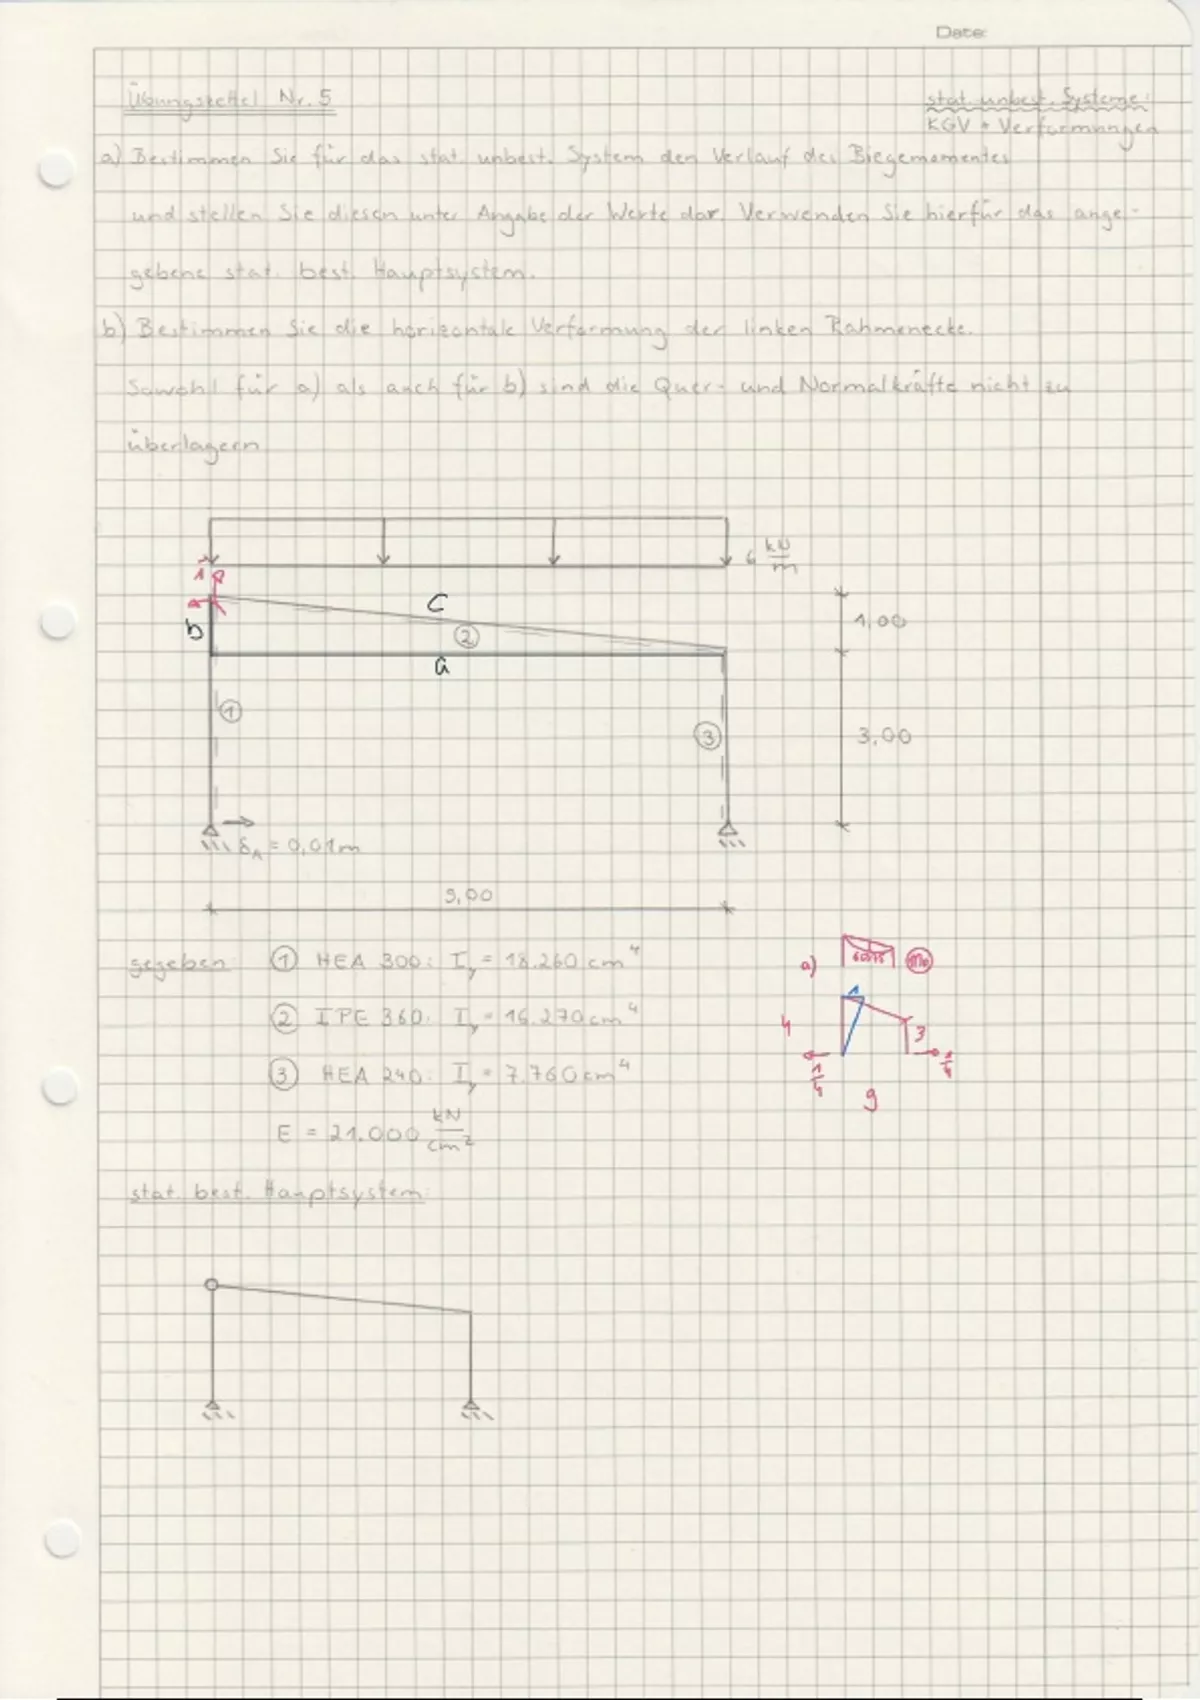 Date:
Übungszettel Nr. 5
stat. unbest. Systeme:
KGV + Verformungen
a) Bestimmen Sie für das stat. unbest. System den Verlauf des Biegemomentes
und stellen Sie diesen unter Angabe der Werte dar. Verwenden Sie hierfür das ange-
gebene stat. best. Hauptsystem.
b) Bestimmen Sie die horizontale Verformung der linken Rahmenecke.
Sowohl für a) als auch für b) sind die Quer- und Normalkräfte nicht zu
überlagern
6 kN/m
1
c
b
2
a
1,00
1
3
3,00
δA = 0,01m
9,00
gegeben: 1 HEA 300: Iy = 18.260 cm⁴
2 IPE 360: Iy = 16.270 cm⁴
3 HEA 240: Iy = 7.760 cm⁴
E = 21.000 kN/cm²
a)
M0
1
4
3
1/4
1/4
9
stat. best. Hauptsystem: